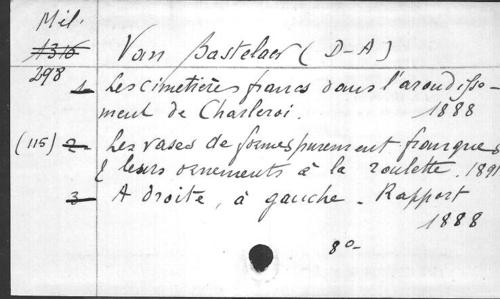 Mil.
1316 Van Bastelaer (D-A)
298
1 Les cimetières francs dans l'arondisse-
ment de Charleroi. 1888
(115) 2 Les vases de formes purement franques
& leurs ornements à la roulette. 1891
3 A droite, à gauche. Rapport
1888
8o-